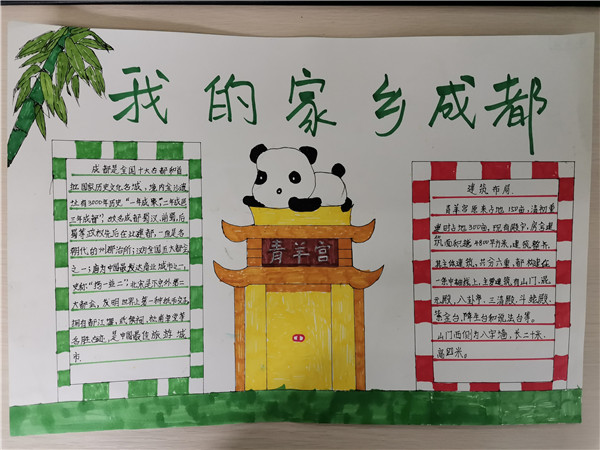 我的家乡成都
成都是全国十大古都和首
批国家历史文化名城，境内金沙遗
址有3000年历史“一年成聚，二年成邑
三年成都”，故名成都蜀汉，前蜀，后
蜀等政权先后在此建都，一直是各
朝代的州郡治所；汉为全国五大都会
之一；唐为中国最发达商业城市之一，
史称“扬一益二”北宋是汴京外第二
大都会，发明世界上第一种纸币交子
拥有都江堰，武侯祠，杜甫草堂等
名胜古迹，是中国最佳旅游城
市.
青羊宫
建筑布局
青羊宫原来占地150亩，清初重
建时占地300亩，现有殿宇，房舍建
筑面积超4800平方米，建筑整齐.
其主体建筑，共分六重，都构建在
一条中轴线上，主要建筑，有山门，混
元殿，八卦亭，三清殿，斗姥殿，
紫金台，降生台和说生台等。
山门西侧有八字墙，长二十米.
高四米。